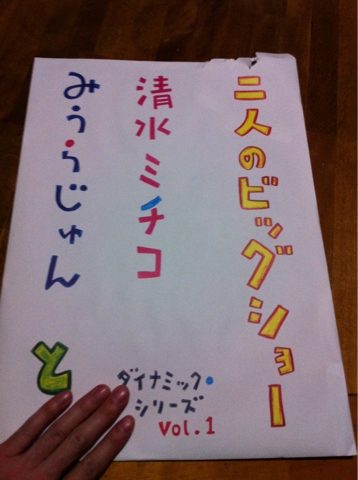 二人のビッグショー
清水ミチコ
みうらじゅん
と
ダイナミック・
シリーズ
vol.1